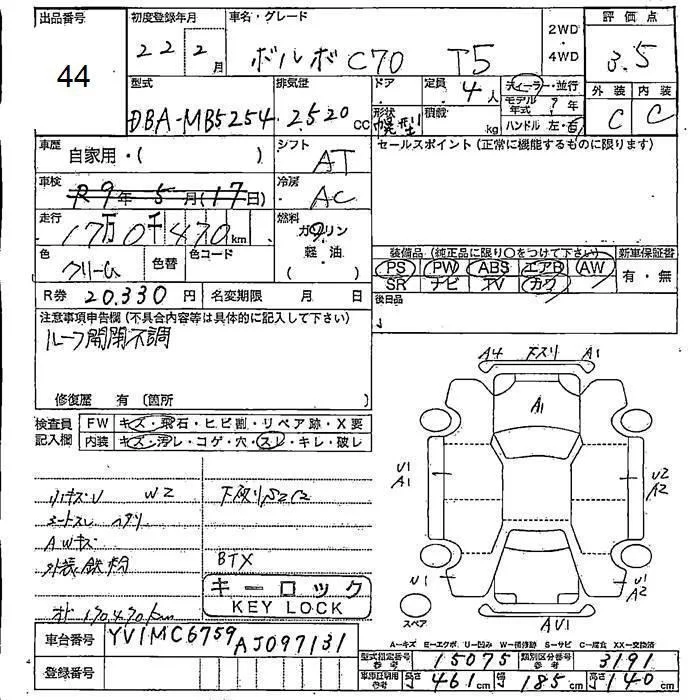 出品番号
44
初度登録年月
22 2月
車名・グレード
ボルボ C70 T5
2WD
・
4WD
評価点
3.5
外装 内装
C C
型式
DBA-MB5254
排気量
2520cc
ドア
定員
4人
ディーラー・並行
モデル年式 ?年
ハンドル 左・右
形状
幌型
積載
kg
車歴
自家用・( )
シフト
AT
セールスポイント(正常に機能するものに限ります)
車検
R9年5月(17日)
冷房
AC
走行
17万0千470km
燃料
ガソリン
・
軽油
色
クリーム
色替
色コード
装備品(純正品に限り○をつけて下さい)
PS PW ABS エアB AW
SR ナビ TV カワ
新車保証書
有・無
後日品
R券 20.330円
名変期限 月 日
注意事項申告欄(不具合内容等は具体的に記入して下さい)
ルーフ開閉不調
修復歴 有(箇所
検査員記入欄
FW キズ・飛石・ヒビ割・リペア跡・X要
内装 キズ・汚レ・コゲ・穴・スレ・キレ・破レ
リキズU W2
シートスレ ヘタリ
AWキズ
外装鉄粉
オド 170470km
BTX
キーロック
KEY LOCK
A4 下スリ A1
A1
U1
A1
U2
A2
U1
U1
A2
スペア
AU1
A-キズ E-エクボ U-凹み W-補修跡 S-サビ C-腐食 XX-交換済
車台番号
YV1MC6759AJ097131
登録番号
型式指定番号参考
15075
類別区分番号参考
3191
車庫証明用参考
長さ 461cm
幅 185cm
高さ 140cm